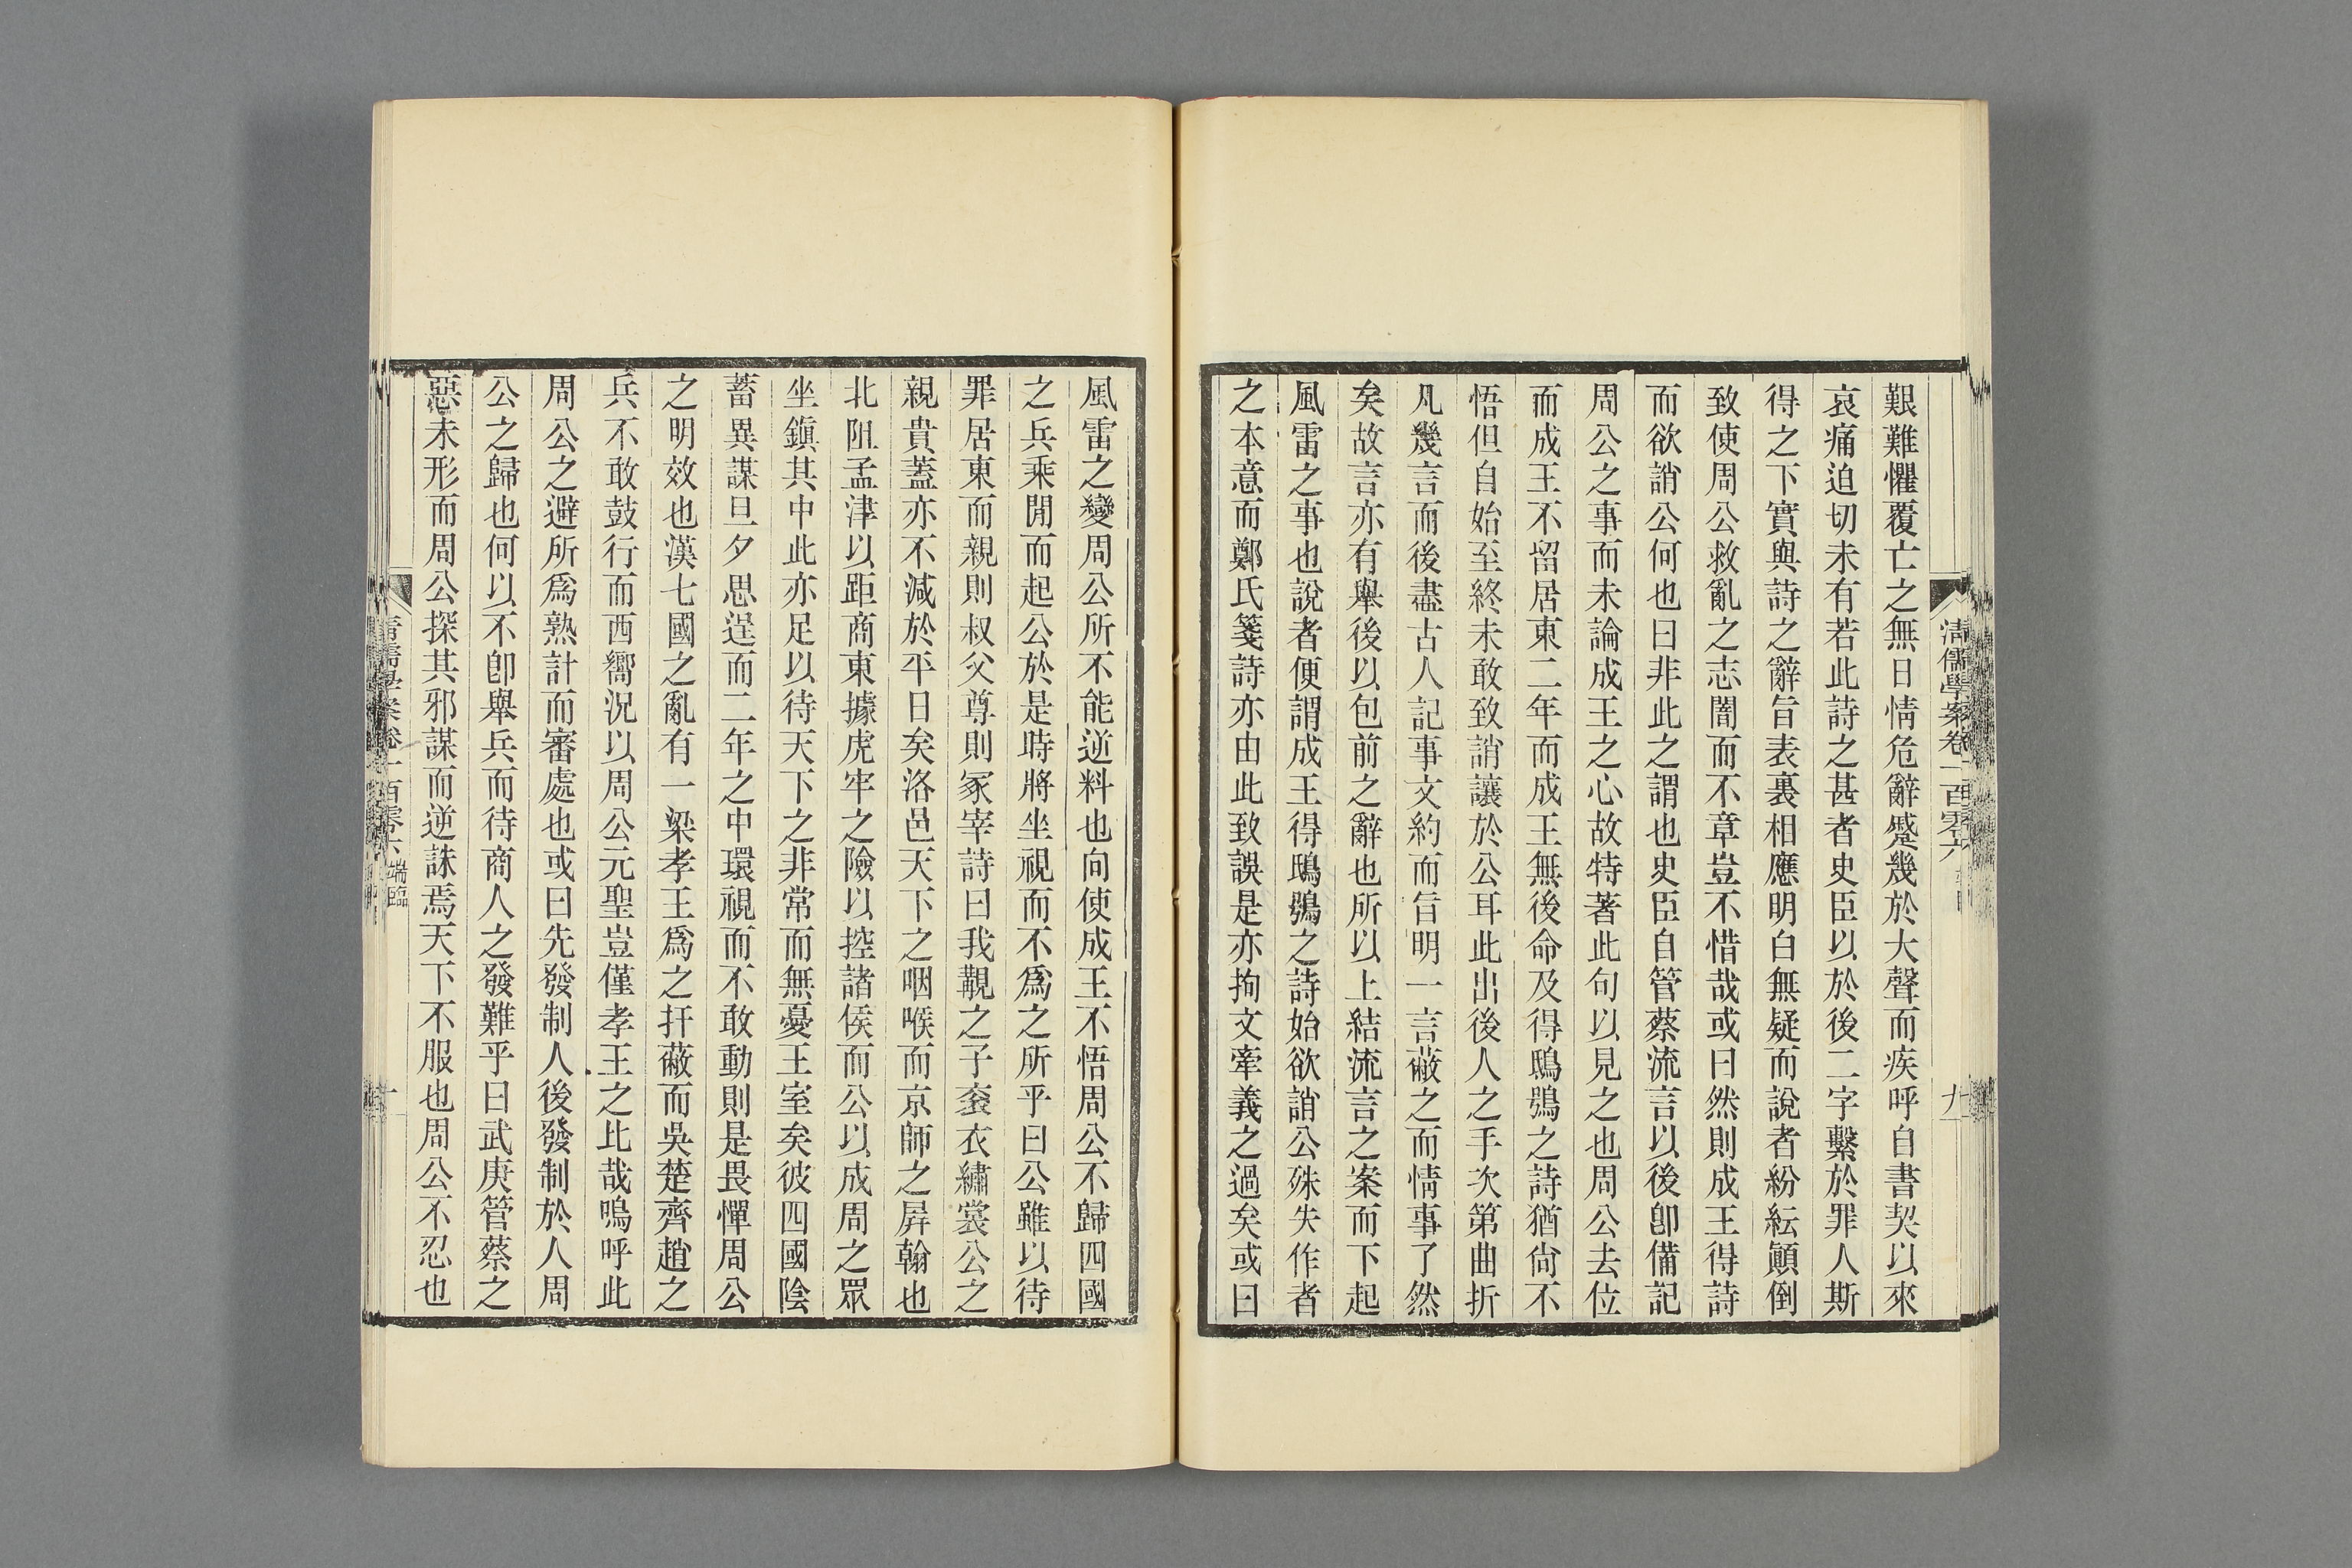 艱難懼覆亡之無日情危辭蹙幾於大聲而疾呼自書契以來
哀痛迫切未有若此詩之甚者史臣以於後二字繫於罪人斯
得之下實與詩之辭旨表裏相應明白無疑而說者紛紜顚倒
致使周公救亂之志闇而不章豈不惜哉或曰然則成王得詩
而欲誚公何也曰非此之謂也史臣自管蔡流言以後卽備記
周公之事而未論成王之心故特著此句以見之也周公去位
而成王不留居東二年而成王無後命及得鴟鴞之詩猶尙不
悟但自始至終未敢致誚讓於公耳此出後人之手次第曲折
凡幾言而後盡古人記事文約而旨明一言蔽之而情事了然
矣故言亦有舉後以包前之辭也所以上結流言之案而下起
風雷之事也說者便謂成王得鴟鴞之詩始欲誚公殊失作者
之本意而鄭氏箋詩亦由此致誤是亦拘文牽義之過矣或曰
清儒學案卷一百零六
九
風雷之變周公所不能逆料也向使成王不悟周公不歸四國
之兵乘閒而起公於是時將坐視而不爲之所乎曰公雖以待
罪居東而親則叔父尊則冢宰詩曰我覯之子袞衣繡裳公之
親貴蓋亦不減於平日矣洛邑天下之咽喉而京師之屛翰也
北阻孟津以距商東據虎牢之險以控諸侯而公以成周之眾
坐鎭其中此亦足以待天下之非常而無憂王室矣彼四國陰
蓄異謀旦夕思逞而二年之中環視而不敢動則是畏憚周公
之明效也漢七國之亂有一梁孝王爲之扞蔽而吳楚齊趙之
兵不敢鼓行而西嚮況以周公元聖豈僅孝王之比哉嗚呼此
周公之避所爲熟計而審處也或曰先發制人後發制於人周
公之歸也何以不卽舉兵而待商人之發難乎曰武庚管蔡之
惡未形而周公探其邪謀而逆誅焉天下不服也周公不忍也
清儒學案卷一百零六 端臨
十